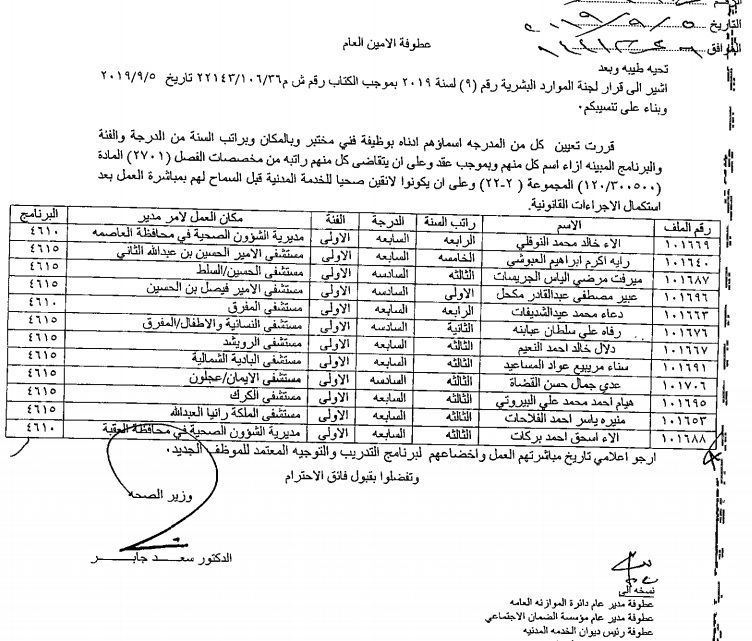 الرقم
التاريخ ٢٠١٩/٩/٥
الموافق
عطوفة الامين العام
تحيه طيبه وبعد
اشير الى قرار لجنة الموارد البشرية رقم (٩) لسنة ٢٠١٩ بموجب الكتاب رقم ش م٢٢١٤٣/١٠٦/٣٦ تاريخ ٢٠١٩/٩/٥
وبناء على تنسيبكم.
قررت تعيين كل من المدرجه اسماؤهم ادناه بوظيفة فني مختبر وبالمكان وبراتب السنة من الدرجة والفئة
والبرنامج المبينه ازاء اسم كل منهم وبموجب عقد وعلى ان يتقاضى كل منهم راتبه من مخصصات الفصل (٢٧٠١) المادة
(١٢٠/٣٠٠٥٠٠) المجموعة (٢-٢٢) وعلى ان يكونوا لائقين صحيا للخدمة المدنية قبل السماح لهم بمباشرة العمل بعد
استكمال الاجراءات القانونية.
رقم الملف الاسم راتب السنة الدرجة الفئة مكان العمل لامر مدير البرنامج
١٠١٦٦٩ الاء خالد محمد النوفلي الرابعه السابعه الاولى مديرية الشؤون الصحية في محافظة العاصمه ٤٦١٠
١٠١٦٤٠ رايه اكرم ابراهيم العبوشي الخامسه السابعه الاولى مستشفى الامير الحسين بن عبدالله الثاني ٤٦١٥
١٠١٦٨٧ ميرفت مرضي الياس الجريسات الثالثه السادسه الاولى مستشفى الحسين/السلط ٤٦١٥
١٠١٦٩٦ عبير مصطفى عبدالقادر مكحل الاولى السادسه الاولى مستشفى الامير فيصل بن الحسين ٤٦١٥
١٠١٦٦٣ دعاء محمد عيدالشديفات الرابعه السابعه الاولى مستشفى المفرق ٤٦١٠
١٠١٦٧٦ رفاه علي سلطان عبابنه الثانية السادسه الاولى مستشفى النسائية والاطفال/المفرق ٤٦١٥
١٠١٦٦٧ دلال خالد احمد النعيم الثالثه السابعه الاولى مستشفى الرويشد ٤٦١٥
١٠١٦٩١ سناء مريبيع عواد المساعيد الثالثه السابعه الاولى مستشفى البادية الشمالية ٤٦١٥
١٠١٧٠٦ عدي جمال حسن القضاة الثالثه السادسه الاولى مستشفى الايمان/عجلون ٤٦١٥
١٠١٦٩٥ هيام احمد محمد علي البيروتي الثالثه السابعه الاولى مستشفى الكرك ٤٦١٥
١٠١٦٥٣ منيره ياسر احمد الفلاحات الثالثه السابعه الاولى مستشفى الملكة رانيا العبدالله ٤٦١٥
١٠١٦٨٨ الاء اسحق احمد بركات الثالثه السابعه الاولى مديرية الشؤون الصحية في محافظة العقبة ٤٦١٠
ارجو اعلامي تاريخ مباشرتهم العمل واخضاعهم لبرنامج التدريب والتوجيه المعتمد للموظف الجديد.
وتفضلوا بقبول فائق الاحترام
وزير الصحه
الدكتور سعـــــد جابــــــر
نسخه الى
عطوفة مدير عام دائرة الموازنه العامه
عطوفة مدير عام مؤسسة الضمان الاجتماعي
عطوفة رئيس ديوان الخدمه المدنيه